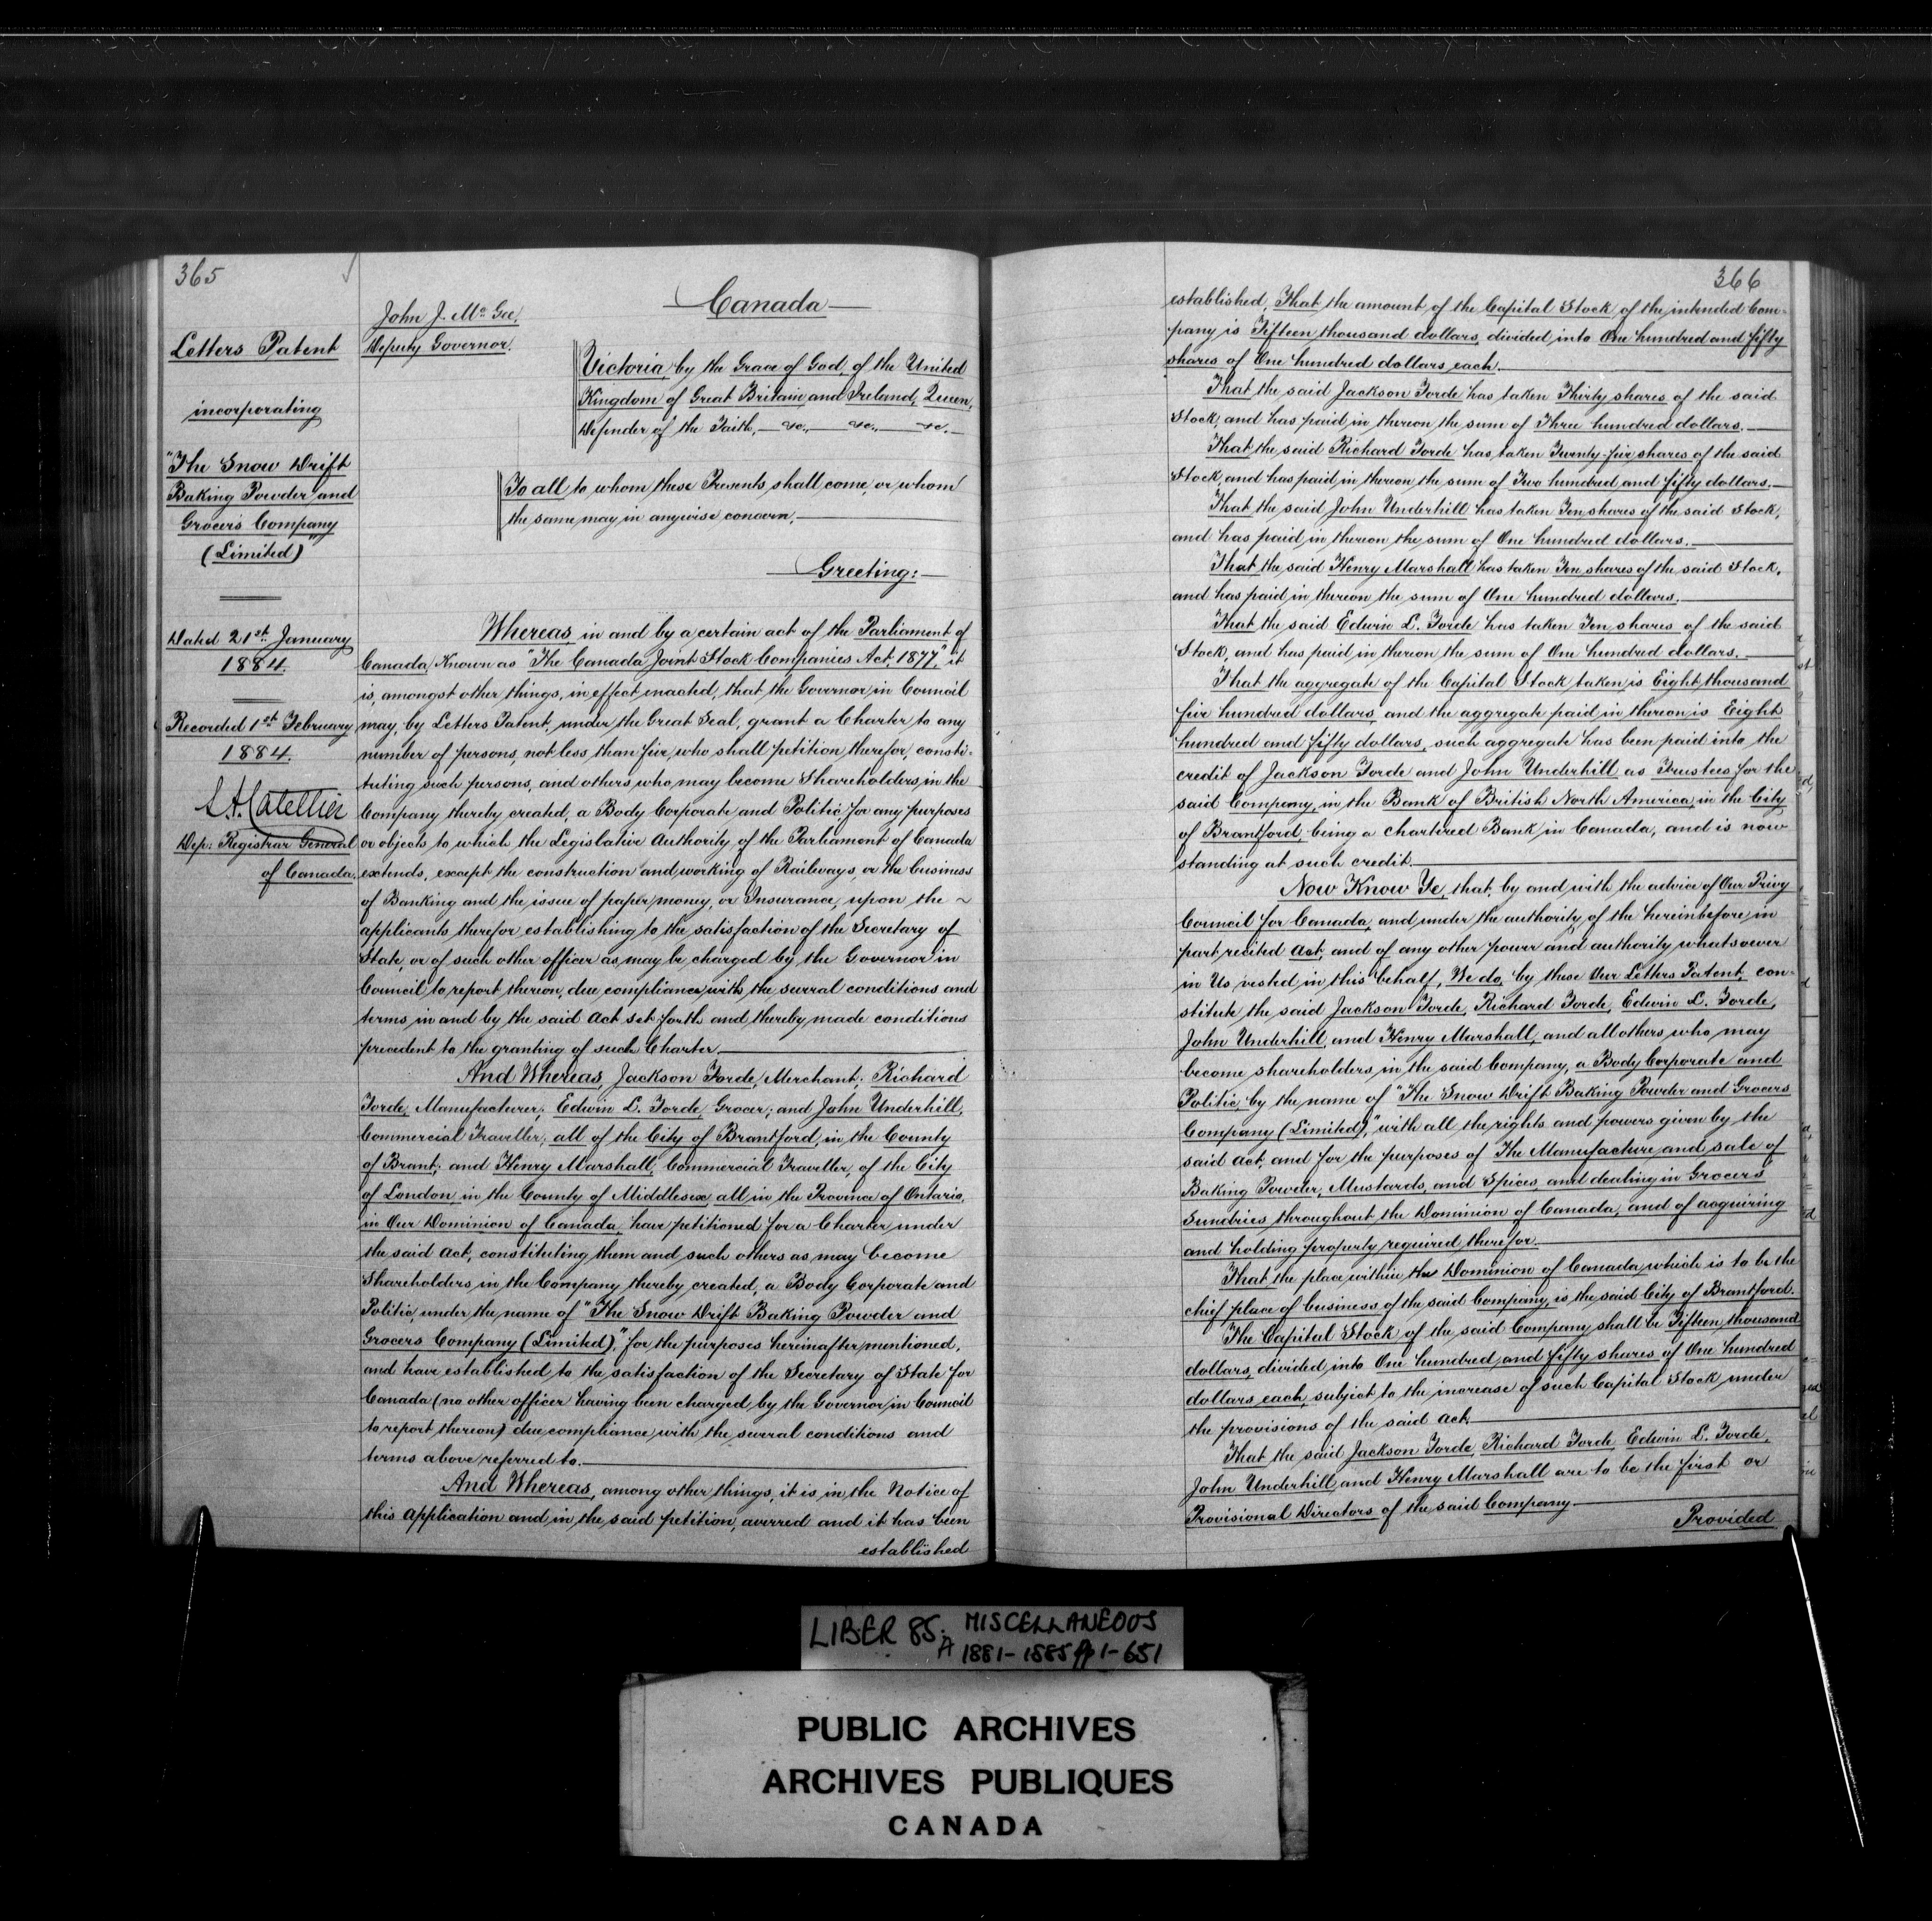 365
Letters Patent
incorporating
"The Snow Drift
Baking Powder and
Grocers Company
(Limited)"
Dated 21st January
1884.
Recorded 1st February
1884.
L. A. Catellier
Dep: Registrar General
of Canada.
John J. Mc Gee.
Deputy Governor.
Canada
Victoria by the Grace of God, of the United
Kingdom of Great Britain and Ireland, Queen,
Defender of the Faith, — &c., — &c., — &c. —
To all to whom these Presents shall come, or whom
the same may in anywise concern,
Greeting:
Whereas in and by a certain act of the Parliament of
Canada, Known as "The Canada Joint Stock Companies Act, 1877," it
is, amongst other things, in effect enacted, that the Governor in Council
may, by Letters Patent, under the Great Seal, grant a Charter to any
number of persons, not less than five, who shall petition therefor, consti-
tuting such persons, and others who may become Shareholders, in the
Company thereby created, a Body Corporate and Politic, for any purposes
or objects to which the Legislative Authority of the Parliament of Canada
extends, except the construction and working of Railways, or the business
of Banking and the issue of paper money, or Insurance, upon the ~
applicants therefor establishing to the satisfaction of the Secretary of
State, or of such other officer as may be charged by the Governor in
Council to report thereon, due compliance with the several conditions and
terms in and by the said Act set forth and thereby made conditions
precedent to the granting of such Charter.
And Whereas, Jackson Forde, Merchant; Richard
Forde, Manufacturer; Edwin L. Forde, Grocer; and John Underhill,
Commercial Traveller; all of the City of Brantford, in the County
of Brant; and Henry Marshall, Commercial Traveller, of the City
of London in the County of Middlesex, all in the Province of Ontario,
in Our Dominion of Canada, have petitioned for a Charter under
the said Act, constituting them and such others as may become
Shareholders in the Company thereby created, a Body Corporate and
Politic, under the name of "The Snow Drift Baking Powder and
Grocers Company (Limited)," for the purposes hereinafter mentioned,
and have established to the satisfaction of the Secretary of State for
Canada (no other officer having been charged by the Governor in Council
to report thereon) due compliance with the several conditions and
terms above referred to.
And Whereas, among other things, it is in the Notice of
this application and in the said petition, averred and it has been
established
366
established, That the amount of the Capital Stock of the intended Com-
pany is Fifteen thousand dollars, divided into One hundred and fifty
shares of One hundred dollars each.
That the said Jackson Forde has taken Thirty shares of the said
Stock, and has paid in thereon the sum of Three hundred dollars.
That the said Richard Forde has taken Twenty-five shares of the said
Stock, and has paid in thereon the sum of Two hundred and fifty dollars.
That the said John Underhill has taken Ten shares of the said Stock,
and has paid in thereon the sum of One hundred dollars.
That the said Henry Marshall has taken Ten shares of the said Stock,
and has paid in thereon the sum of One hundred dollars.
That the said Edwin L. Forde has taken Ten shares of the said
Stock, and has paid in thereon the sum of One hundred dollars.
That the aggregate of the Capital Stock taken is Eight thousand
five hundred dollars, and the aggregate paid in thereon is Eight
hundred and fifty dollars, such aggregate has been paid into the
credit of Jackson Forde and John Underhill as Trustees for the
said Company, in the Bank of British North America, in the City
of Brantford, being a chartered Bank in Canada, and is now
standing at such credit.
Now Know Ye, that, by and with the advice of Our Privy
Council for Canada, and under the authority of the hereinbefore in
part recited Act, and of any other power and authority whatsoever
in Us vested in this behalf, We do, by these Our Letters Patent, con-
stitute the said Jackson Forde, Richard Forde, Edwin L. Forde,
John Underhill, and Henry Marshall, and all others who may
become shareholders in the said Company, a Body Corporate and
Politic, by the name of "The Snow Drift Baking Powder and Grocers
Company (Limited)," with all the rights and powers given by the
said Act, and for the purposes of The Manufacture and sale of
Baking Powder, Mustards, and Spices, and dealing in Grocers
Sundries, throughout the Dominion of Canada, and of acquiring
and holding property required therefor.
That the place within the Dominion of Canada which is to be the
chief place of business of the said Company, is the said City of Brantford.
The Capital Stock of the said Company shall be Fifteen thousand
dollars, divided into One hundred and fifty shares of One hundred
dollars each, subject to the increase of such Capital Stock under
the provisions of the said Act.
That the said Jackson Forde, Richard Forde, Edwin L. Forde,
John Underhill and Henry Marshall are to be the first or
Provisional Directors of the said Company.
Provided
LIBER 85. A MISCELLANEOUS
1881-1885 pp 1-651
PUBLIC ARCHIVES
ARCHIVES PUBLIQUES
CANADA